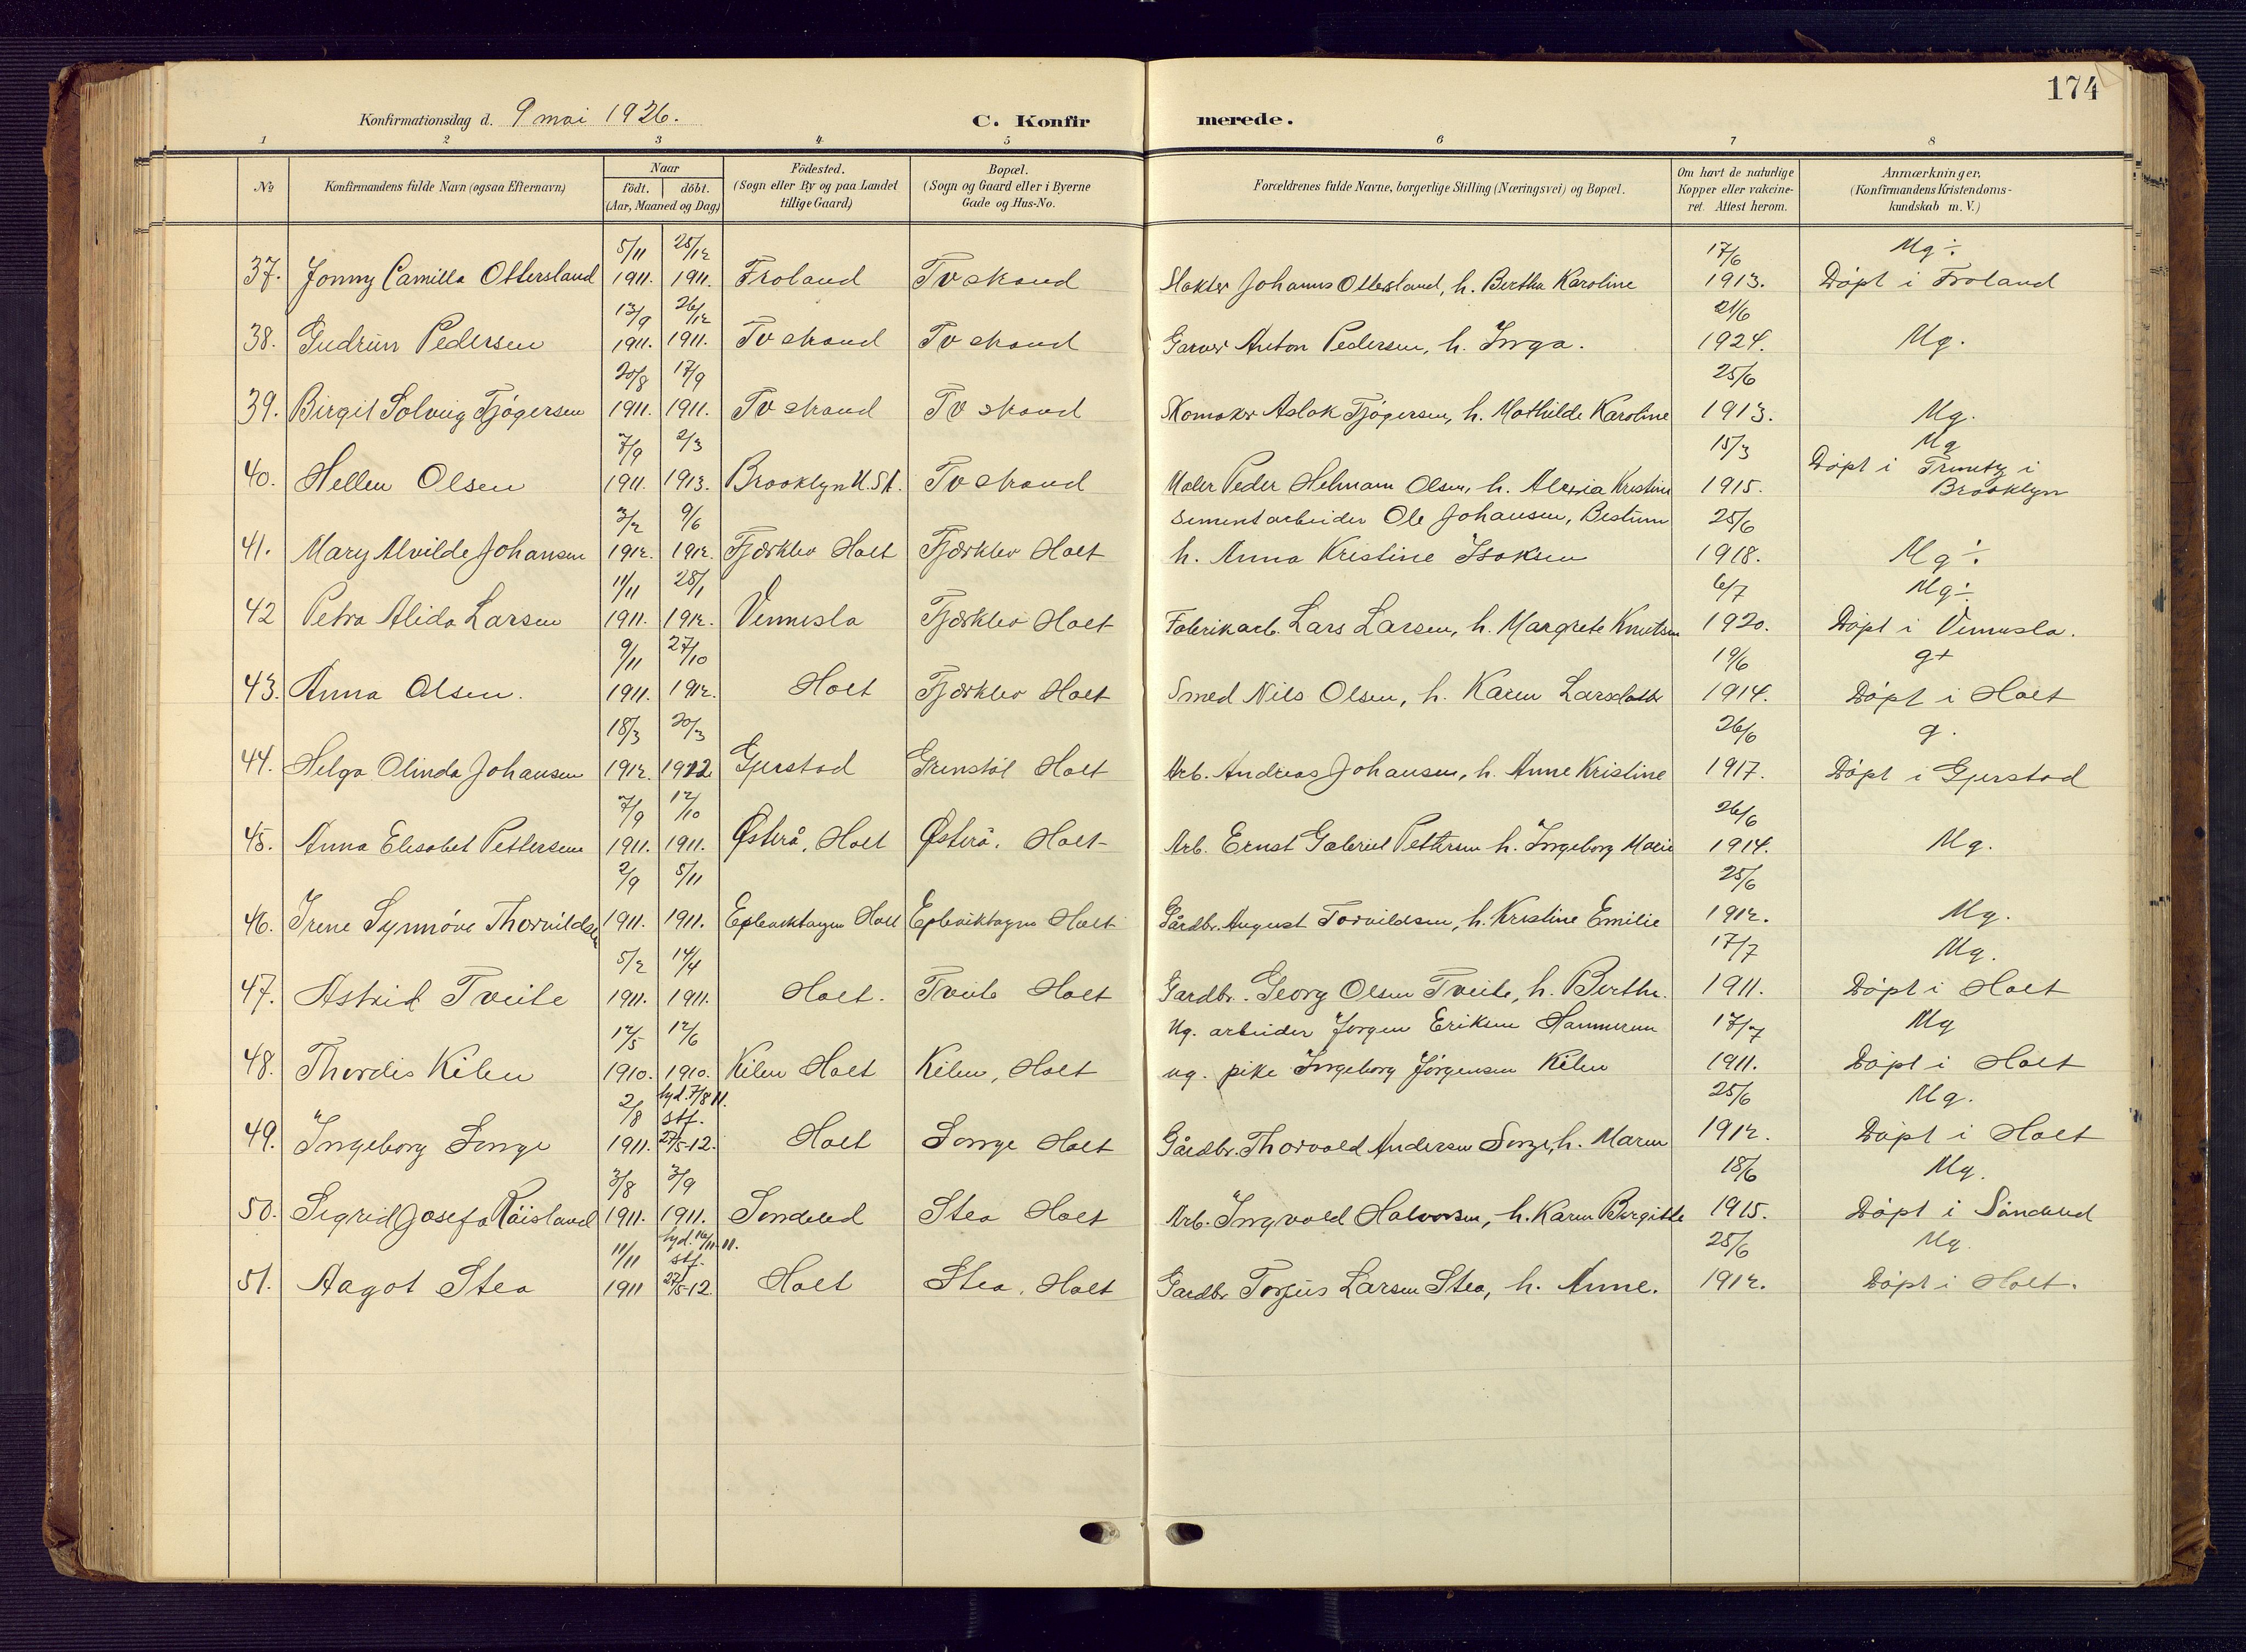 174
Konfirmationsdag d. 9 mai 1926. C. Konfirmerede.
1 2 3 4 5 6 7 8
No Konfirmandens fulde Navn (ogsaa Efternavn) Naar födt. döbt. (Aar, Maaned og Dag) Födested. (Sogn eller By og paa Landet tillige Gaard) Bopæl. (Sogn og Gaard eller i Byerne Gade og Hus-No. Forældrenes fulde Navne, borgerlige Stilling (Næringsvei) og Bopæl. Om havt de naturlige Kopper eller vakcineret. Attest herom. Anmærkninger. (Konfirmandens Kristendomskundskab m. V.)
5/11 25/12 17/6 Mg ÷
37. Jonny Camilla Ottersland 1911. 1911. Froland Tvestrand Slakter Johannes Ottersland, h. Bertha Karoline 1913. Döpt i Froland
13/9 26/12 21/6
38. Gudrun Pedersen 1911. 1911. Tvestrand Tvestrand Garver Anton Pedersen, h. Inga. 1924. Mg.
20/8 17/9 25/6
39. Birgit Solveig Tjögersen 1911. 1911. Tvestrand Tvestrand Skomaker Aslak Tjögersen, h. Mathilde Karoline 1913. Mg.
7/9 2/3 15/3 Mg
40. Hellen Olsen 1911. 1913. Brooklyn U.S.A. Tvestrand Maler Peder Helmann Olsen, h. Kristine 1915. Döpt i Trinity i Brooklyn
3/2 9/6 Sementarbeider Ole Johansen, Bestum 25/6
41. Mary Alvilde Johansen 1912. 1912. Fjærklev Holt Fjærklev Holt h. Anna Kristine Isaksen 1918. Mg ÷
11/11 28/1 6/7 Mg ÷
42 Petra Alida Larsen 1911. 1912. Vennesla Fjærklev Holt Fabrikarb. Lars Larsen, h. Margrete Knutsen 1920. Döpt i Vennesla.
9/11 27/10 19/6 g+
43. Anna Olsen. 1911. 1912. Holt Fjærklev Holt Smed Nils Olsen, h. Karen Larsdatter 1914. Döpt i Holt
18/3 20/3 26/6 g.
44. Helga Olinda Johansen 1912. 1912 Gjerstad Grenstöl Holt Arb. Andreas Johansen, h. Anne Kristine 1917. Döpt i Gjerstad
7/9 12/10 26/6
45. Anna Elisabet Pettersen 1911. 1911. Østerå, Holt Østerå, Holt Arb. Ernst Gabriel Pettersen h. Ingeborg Marie 1914. Mg.
2/9 5/11 25/6
46. Irene Synnöve Thorvildsen 1911. 1911. Epleviktangen Holt Epleviktangen Holt Gårdbr. August Torvildsen, h. Kristine Emilie 1912. Mg.
5/2 14/4 17/7 Mg.
47. Astrid Tveite 1911. 1911. Holt. Tveite Holt Gardbr. Georg Olsen Tveite, h. Berthe. 1911. Döpt i Holt
12/5 12/6 Ug. arbeider Jörgen Eriksen Hammeren 17/7 Mg
48. Thordis Kilen 1910. 1910. Kilen Holt Kilen, Holt ug. pike Ingeborg Jörgensen Kilen 1911. Döpt i Holt
2/8 hjd. 7/8 11. stf. 25/6 Mg.
49. Ingeborg Songe 1911. 27/5-12. Holt Songe Holt Gårdbr. Thorvald Andersen Songe, h. Maren 1912. Döpt i Holt
3/8 3/9 18/6 Mg.
50. Sigrid Josefa Röisland 1911. 1911. Söndeled Stea Holt Arb. Ingvald Halvorsen, h. Karen Birgitte 1915. Döpt i Söndeled
11/11 hjd. 16/11 11. stf. 25/6 Mg.
51. Aagot Stea 1911 27/5-12. Holt Stea, Holt Gardbr Torjus Larsen Stea, h. Anne. 1912. Döpt i Holt.